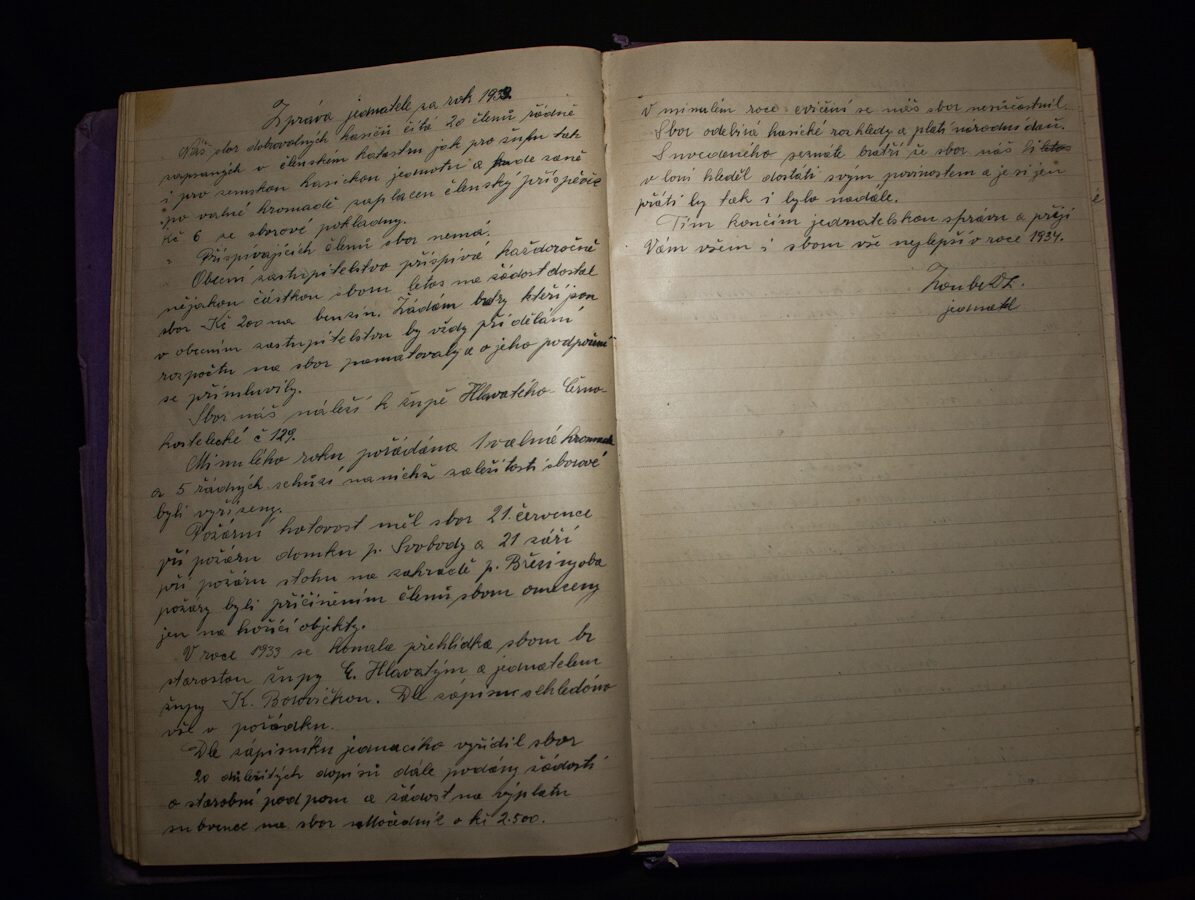 Zpráva jednatele za rok 1933.
Náš sbor dobrovolných hasičů čítá 20 členů řádně
zapsaných v členském katastru jak pro župu tak
i pro zemskou hasickou jednotu a bude zaně
po valné hromadě zaplacen členský příspěvek
Kč 6 ze sborové pokladny.
Přispívajících členů sbor nemá.
Obecní zastupitelstvo přispívá každoročně
nějakou částkou sboru letos na žádost dostal
sbor Kč 200 na benzin. Žádám bratry kteří jsou
v obecním zastupitelstvu by vždy při dělání
rozpočtu na sbor pamatovaly a o jeho podporu
se přimluvily.
Sbor náš náleží k župě Hlavatého Černo-
kostelecké č 129.
Minulého roku pořádána 1 valná hromada
a 5 řádných schůzí na nichž záležitosti sborové
byli vyřízeny.
Požární hotovost měl sbor 21. července
při požáru domku p. Svobody a 21 září
při požáru stohu na zahradě p. Březiny oba
požáry byli přičiněním členů sboru omezeny
jen na hořící objekty.
V roce 1933 se konala přehlídka sboru br
starostou župy E. Hlavatým a jednatelem
župy K. Dle zápisu shledáno
vše v pořádku.
Dle zápisníku jednacího vyřídil sbor
20 důležitých dopisů dále podány žádosti
o starobní podporu a žádost na výplatu
subvence na sbor o Kč 2.500.
V minulém roce cvičení se náš sbor nesúčastnil.
Sbor odebírá hasické rozhledy a platí národní daň.
S uvedeného seznáte bratři že sbor náš
v loni hleděl dostáti svym povinostem a je si jen
přáti by tak i bylo nadále.
Tím končím jednatelskou správu a přeji
Vám všem i sboru vše nejlepší v roce 1934.
jednatel